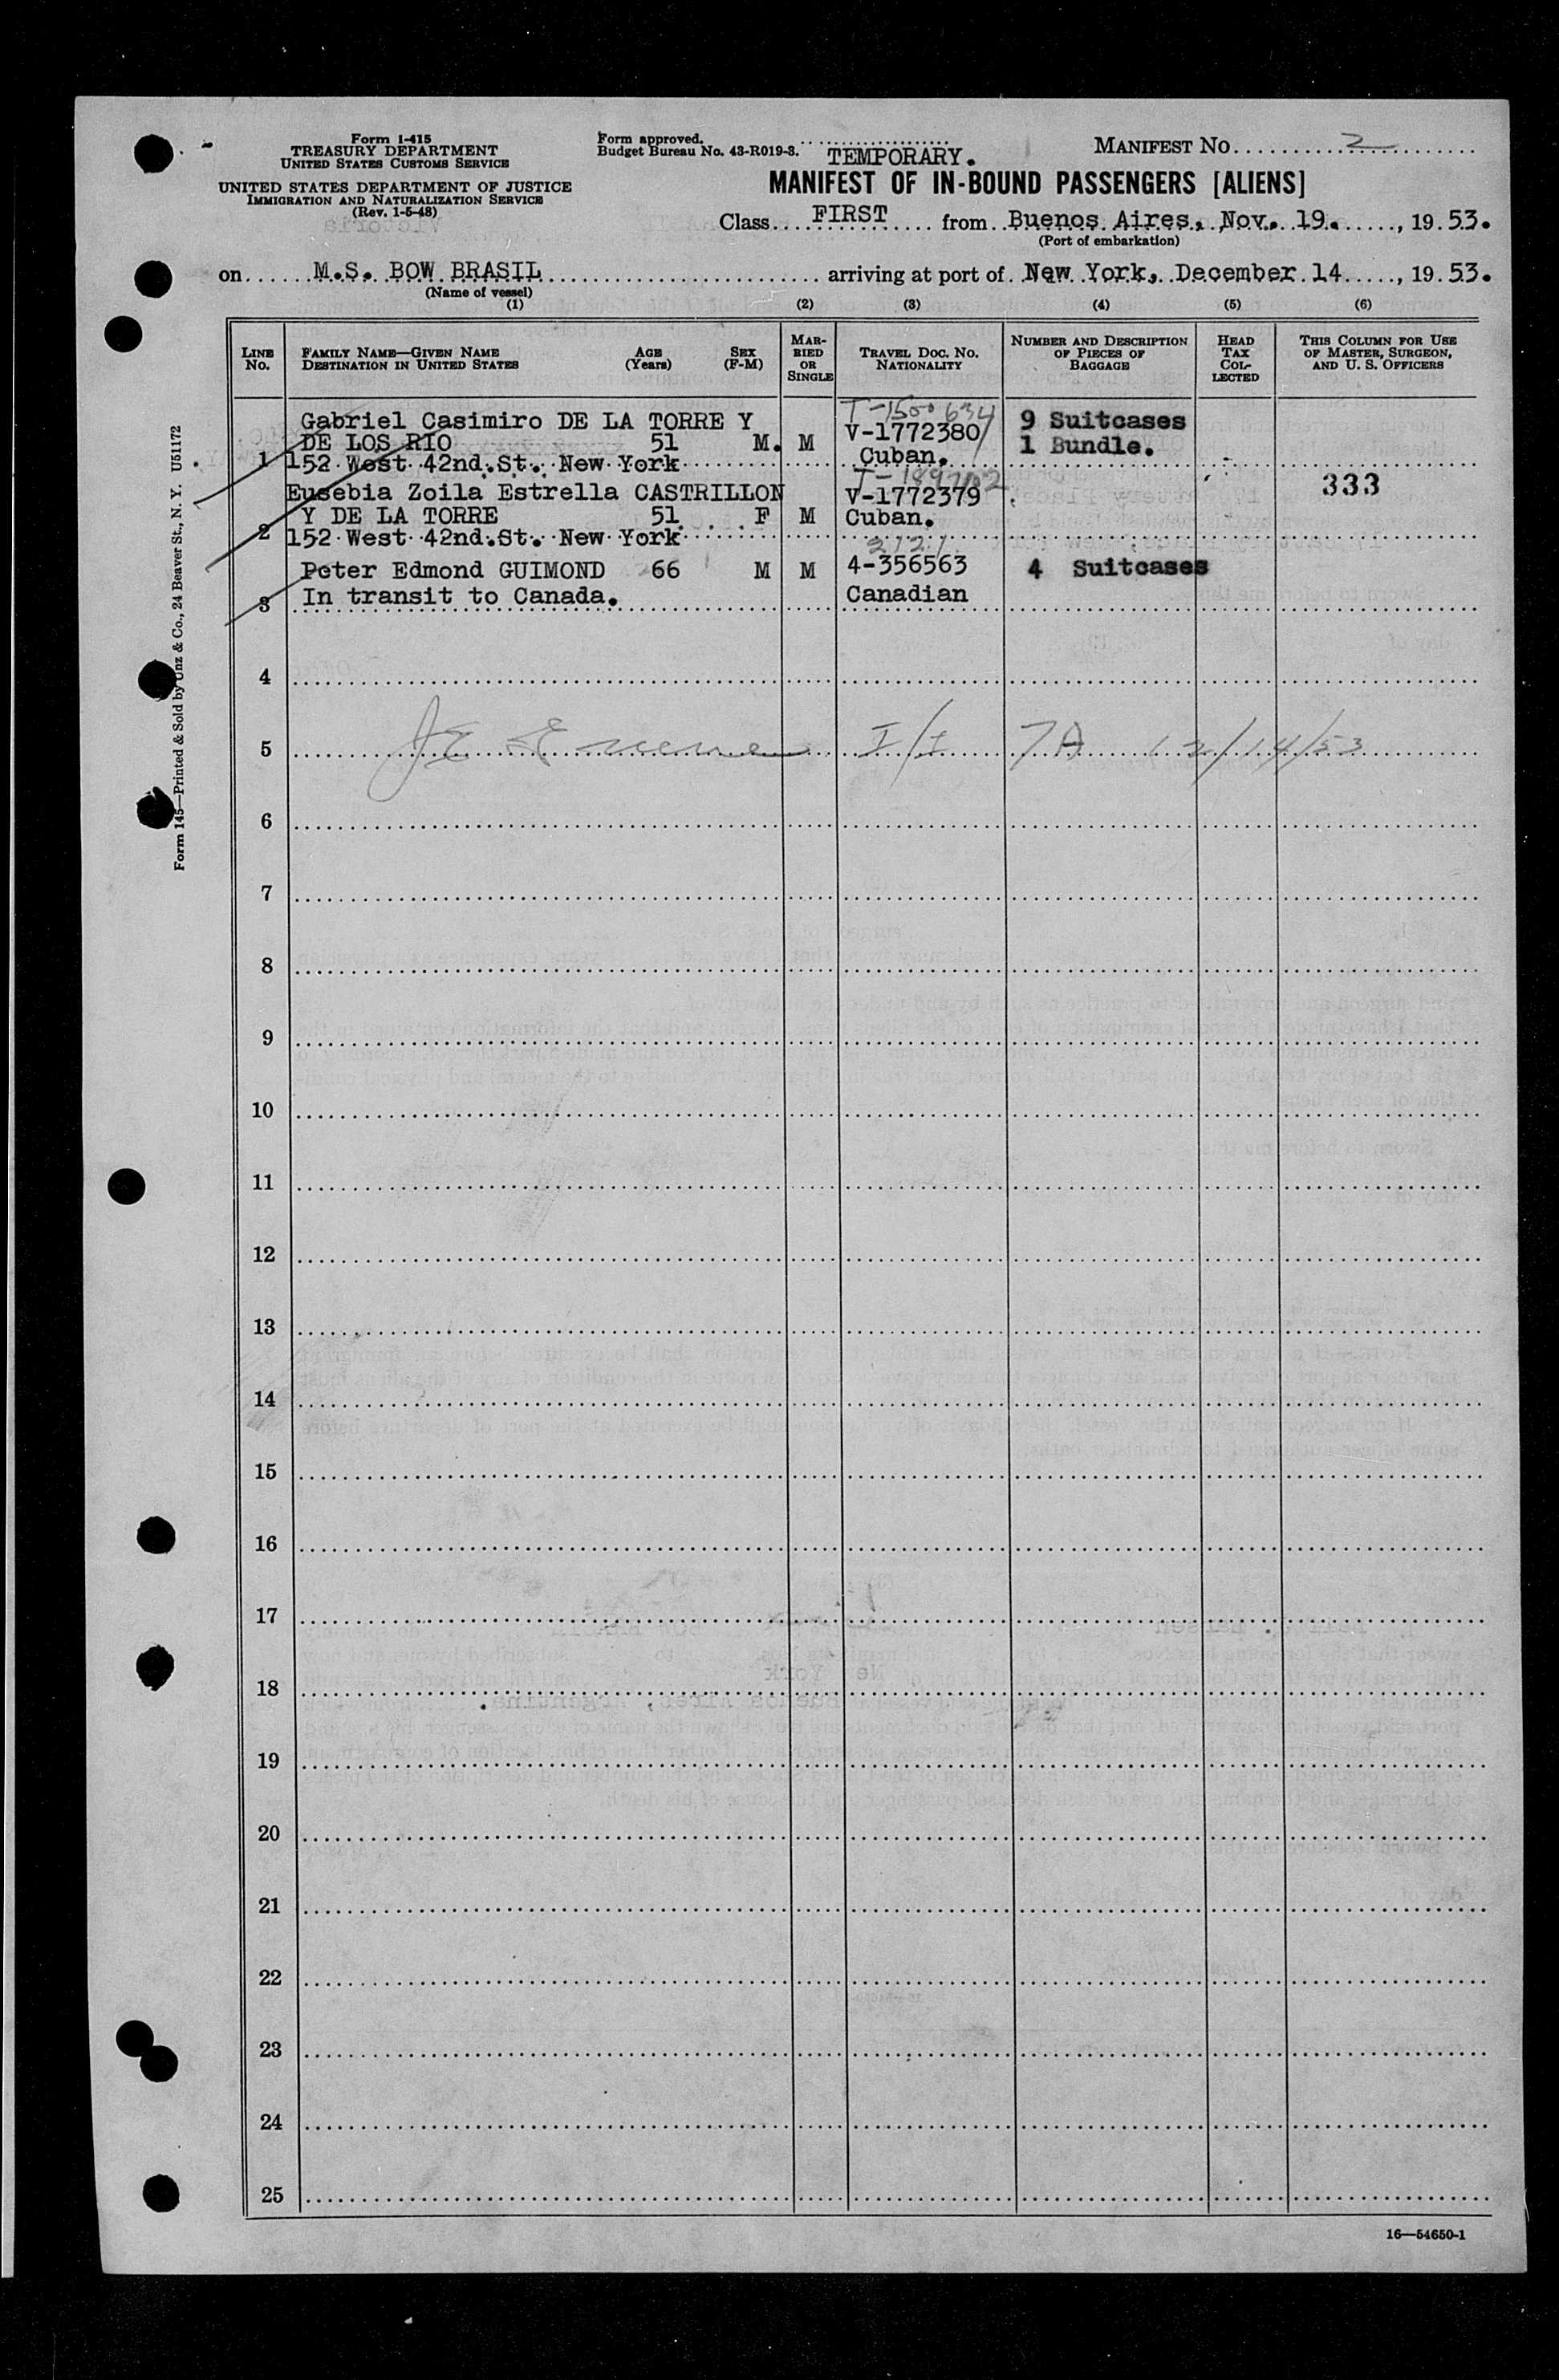 Form I-415
TREASURY DEPARTMENT
UNITED STATES CUSTOMS SERVICE
UNITED STATES DEPARTMENT OF JUSTICE
IMMIGRATION AND NATURALIZATION SERVICE
(Rev. 1-5-48)
Form approved.
Budget Bureau No. 43-R019-3.
TEMPORARY.
MANIFEST NO. 2
MANIFEST OF IN-BOUND PASSENGERS [ALIENS]
Class FIRST from Buenos Aires, Nov. 19. , 19 53.
(Port of embarkation)
on M.S. BOW BRASIL arriving at port of New York, December 14 , 19 53.
(Name of vessel)
(1) (2) (3) (4) (5) (6)
LINE NO. FAMILY NAME—GIVEN NAME DESTINATION IN UNITED STATES AGE (Years) SEX (F-M) MARRIED OR SINGLE TRAVEL DOC. NO. NATIONALITY NUMBER AND DESCRIPTION OF PIECES OF BAGGAGE HEAD TAX COLLECTED THIS COLUMN FOR USE OF MASTER, SURGEON, AND U. S. OFFICERS
T-1500634
Gabriel Casimiro DE LA TORRE Y V-1772380 9 Suitcases
DE LOS RIO 51 M. M Cuban. 1 Bundle.
1 152 West 42nd.St. New York
Eusebia Zoila Estrella CASTRILLON V-1772379 333
Y DE LA TORRE 51 F M Cuban.
2 152 West 42nd.St. New York
2121
Peter Edmond GUIMOND 66 M M 4-356563 4 Suitcases
3 In transit to Canada. Canadian
4
5 I/I 7A 12/14/53
6
7
8
9
10
11
12
13
14
15
16
17
18
19
20
21
22
23
24
25
16—54650-1
Form 145—Printed & Sold by Unz & Co., 24 Beaver St., N. Y. U51172